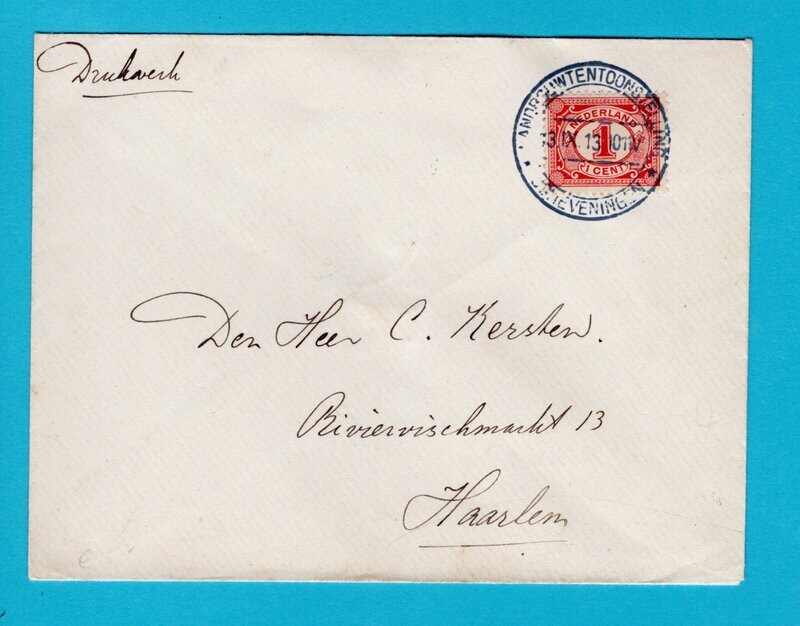 Drukwerk
LANDBOUWTENTOONSTELLING
NEDERLAND
13.IX.13.10-11V
1
1 CENT
SCHEVENINGEN
Den Heer C. Kersten.
Riviervischmarkt 13
Haarlem